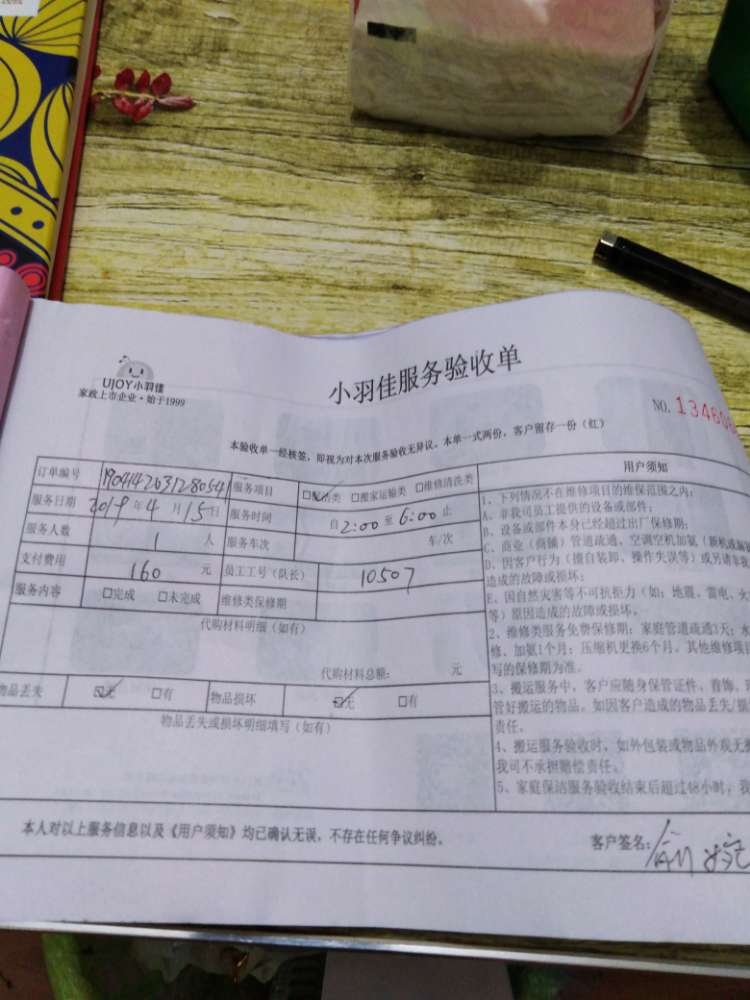 小羽佳服务验收单
UJOY小羽佳
家政上市企业·始于1999
NO. 134606
本验收单一经核签,即视为对本次服务验收无异议。本单一式两份,客户留存一份(红)
订单编号 190414263128054 服务项目 ☑保洁类 □搬家运输类 □维修清洗类
服务日期 2019年4月15日 服务时间 自2:00至6:00止
服务人数 1 人 服务车次 车/次
支付费用 160 元 员工工号(队长) 10507
服务内容 □完成 □未完成 维修类保修期
代购材料明细(如有)
代购材料总额: 元
物品丢失 ☑无 □有 物品损坏 ☑无 □有
物品丢失或损坏明细填写(如有)
用户须知
1、下列情况不在维修项目的维保范围之内:
A、非我司员工提供的设备或部件;
B、设备或部件本身已经超过出厂保修期;
C、商业(商铺)管道疏通、空调空机加氨(新机或漏
D、因客户行为(擅自装卸、操作失误等)或另请非我
造成的故障或损坏;
E、因自然灾害等不可抗拒力(如:地震、雷电、火
等)原因造成的故障或损坏。
2、维修类服务免费保修期:家庭管道疏通3天;水
修、加氨1个月;压缩机更换6个月。其他维修项目
写的保修期为准。
3、搬运服务中,客户应随身保管证件、首饰、
管好搬运的物品。如因客户造成的物品丢失/损
责任。
4、搬运服务验收时,如外包装或物品外观无
我司不承担赔偿责任。
5、家庭保洁服务验收结束后超过48小时,我
本人对以上服务信息以及《用户须知》均已确认无误,不存在任何争议纠纷。
客户签名: